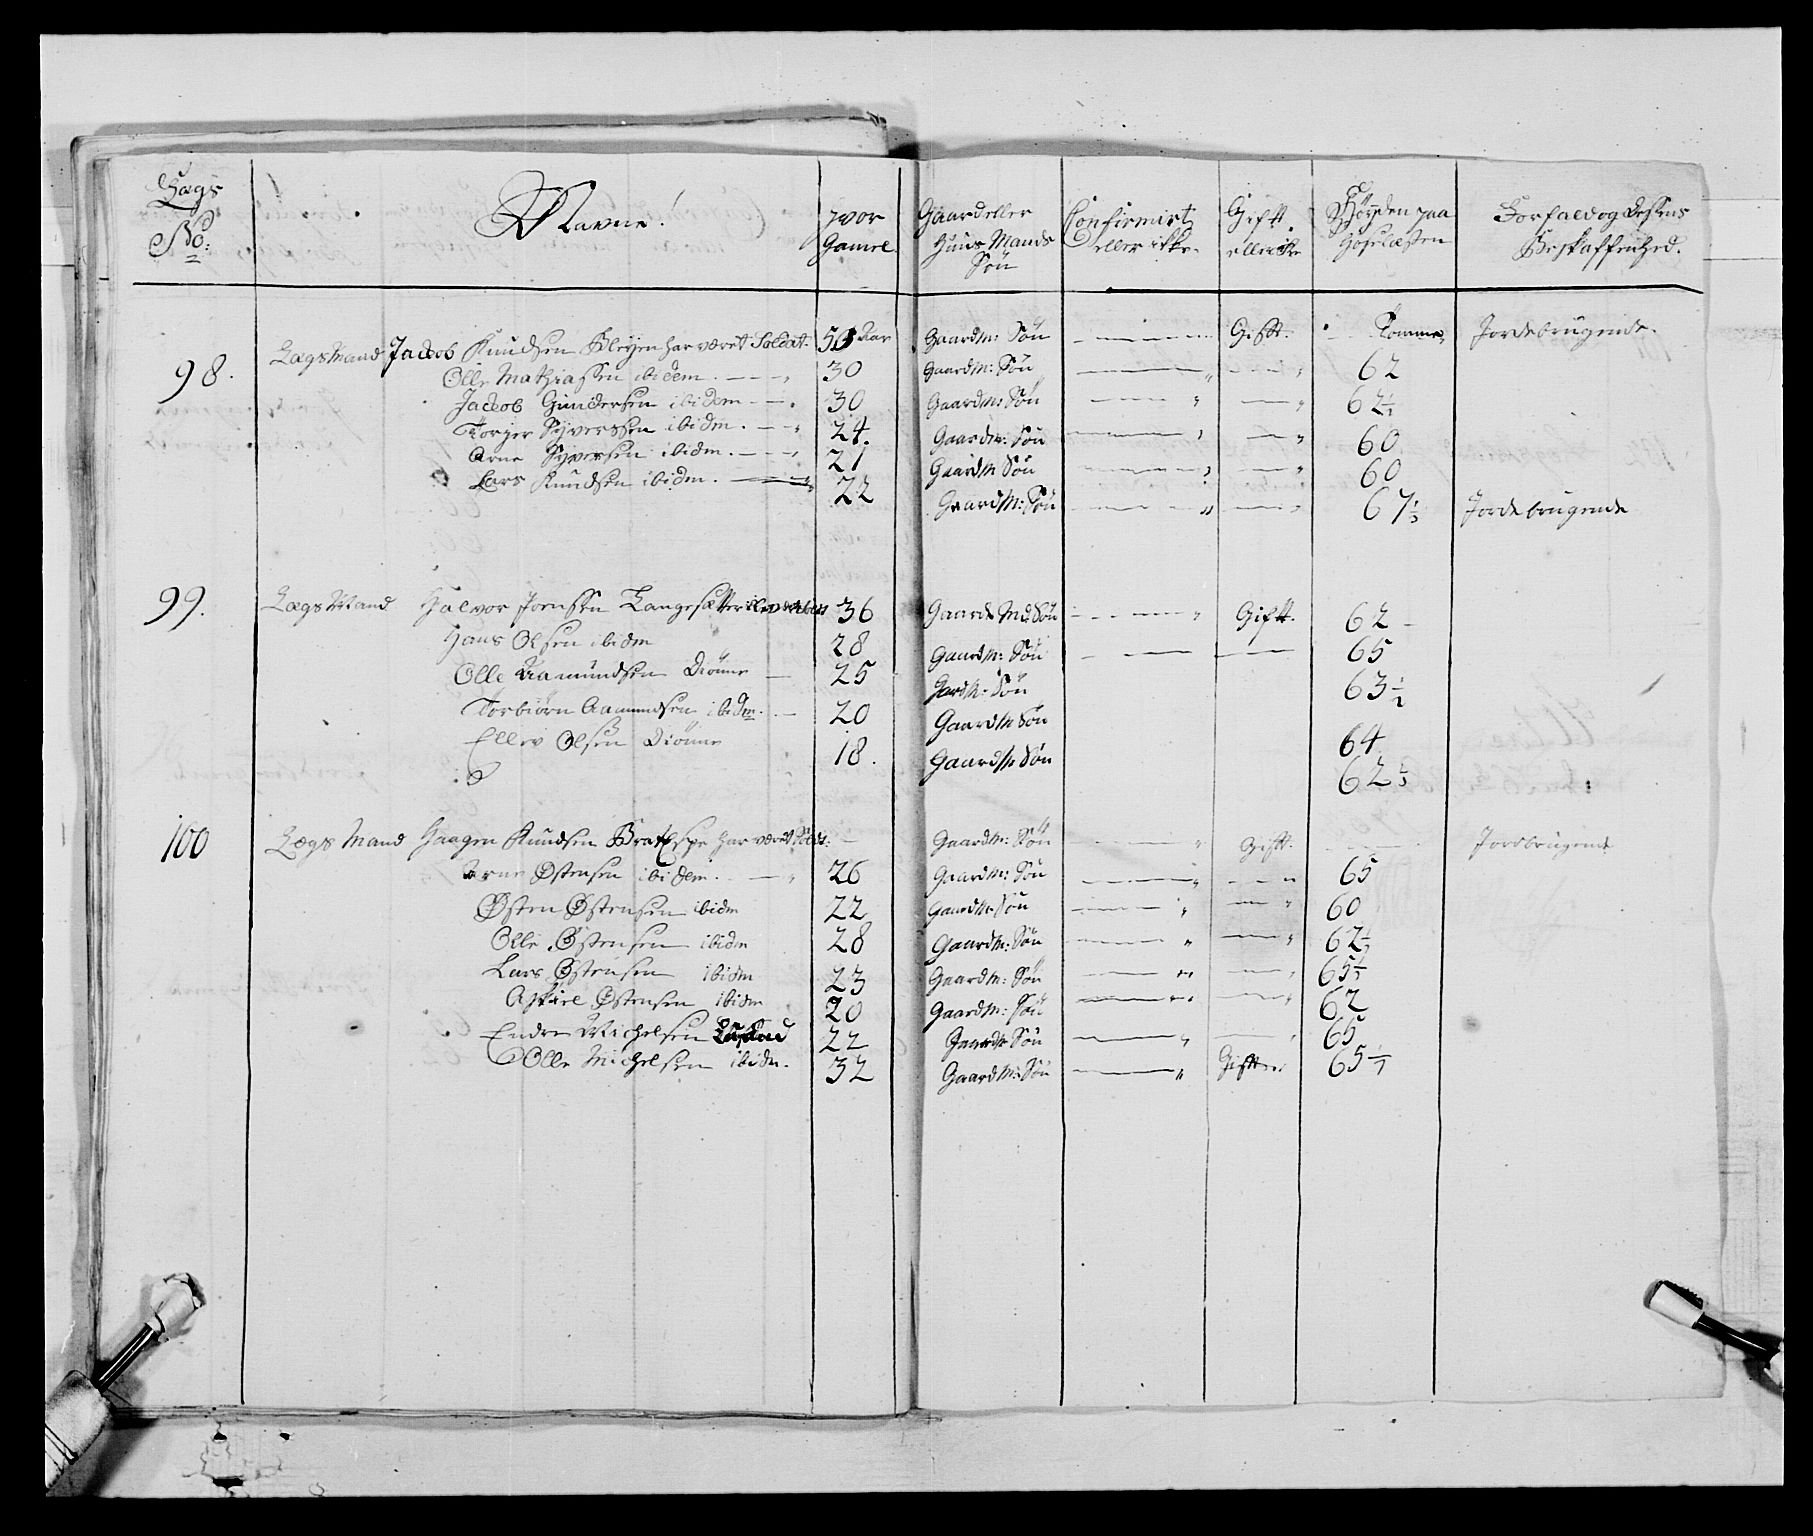 Lægs No: Navne! hvor Gamel Gaard eller Huus Mands Søn Confirmirt eller ikke. Gift eller ikke Høyden paa Hoselæsten Forfald og dessens Beskaffenhed.
98. Lægs Mand Jacob Knudsen Bleyen har været Soldat. 50 Aar Gaardm: Søn Gift. Tomme Jordebrugende.
Olle Mathiassen ibidem. 30 Gaardm: Søn 62
Jacob Gundersen ibidem 30 Gaardm: Søn 62 1/2
Torger Syverssen ibidm. 24. Gaardm: Søn 60
Arne Syversen ibidm. 21 Gaardm Søn 60
Lars Knudsen ibidm. 22 Gaardm: Søn 67 1/3 Jordebrugende
99. Lægs Mand Halvor Jonssen Langesætter 36 Gaards Md: Søn Gift. 62
Hans Olsen ibidm 28 Gaardm: Søn 65
Olle Aamundsen Diønne 25 Gardm: Søn 63 1/2
Torbiørn Aamundsen ibidm. 20 Gaardm Søn 64
Ellev Olsen Diønne 18. Gaardm Søn 62 1/3
100 Lægs Mand Haagen Knudsen BratEspe har været Soldt: Gaardm: Søn Gift. Jordbrugende
Arne Østensen ibidem. 26 Gaardm: Søn 65
Østen Østensen ibidm 22 Gaardm: Søn 60
Olle Østensen ibidm 28 Gaardm: Søn 62 1/3
Lars Østensen ibidm 23 Gaardm: Søn 65 1/3
Askiel Østensen ibidm 20 Gaardm: Søn 62
Endre Michelsen 22 Gaardm Søn 65
Olle Michelsen ibidm. 32 Gaardm: Søn Gift 65 1/7